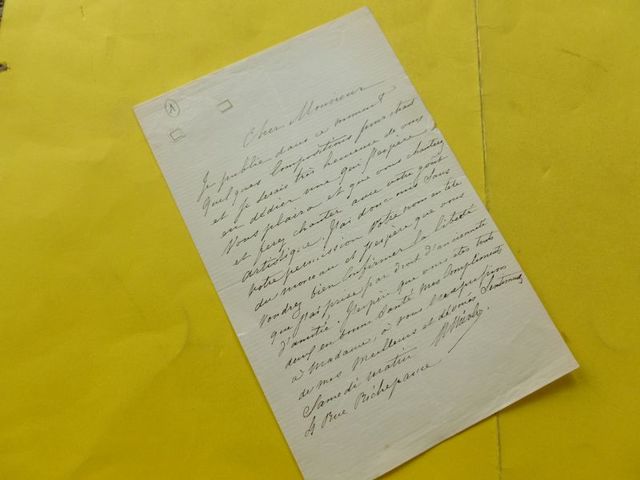 1
Cher Monsieur
Je publie dans ce moment
quelques Compositions pour chant
et je serais très heureuse de vous
en dédier une qui j'espère
vous plaira et que vous chanterez
et ferez chanter avec votre goût
artistique. J'ai donc mis sans
votre permission votre nom en tête
du morceau et j'espère que vous
voudrez bien confirmer la liberté
que j'ai prise par droit d'ancienneté
d'amitié. J'espère que vous êtes tous
deux en bonne santé mes compliments
à Madame, à vous l'expression
de mes meilleurs et dévoués sentiments
Samedi matin
4 Rue Rochepince